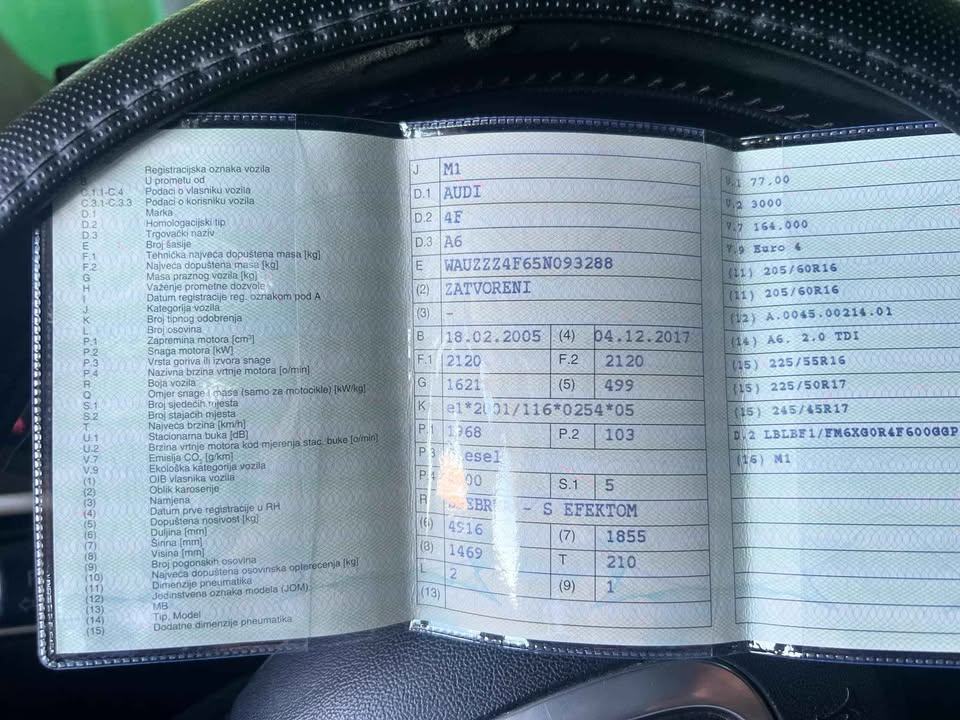 Registracijska oznaka vozila
U prometu od
C.1.1-C.4 Podaci o vlasniku vozila
C.3.1-C.3.3 Podaci o korisniku vozila
D.1 Marka
D.2 Homologacijski tip
D.3 Trgovački naziv
E Broj šasije
F.1 Tehnička najveća dopuštena masa [kg]
F.2 Najveća dopuštena masa [kg]
G Masa praznog vozila [kg]
H Važenje prometne dozvole
I Datum registracije reg. oznakom pod A
J Kategorija vozila
K Broj tipnog odobrenja
L Broj osovina
P.1 Zapremina motora [cm³]
P.2 Snaga motora [kW]
P.3 Vrsta goriva ili izvora snage
P.4 Nazivna brzina vrtnje motora [o/min]
R Boja vozila
Q Omjer snage i mase (samo za motocikle) [kW/kg]
S.1 Broj sjedećih mjesta
S.2 Broj stajaćih mjesta
T Najveća brzina [km/h]
U.1 Stacionarna buka [dB]
U.2 Brzina vrtnje motora kod mjerenja stac. buke [o/min]
V.7 Emisija CO₂ [g/km]
V.9 Ekološka kategorija vozila
(1) OIB vlasnika vozila
(2) Oblik karoserije
(3) Namjena
(4) Datum prve registracije u RH
(5) Dopuštena nosivost [kg]
(6) Duljina [mm]
(7) Širina [mm]
(8) Visina [mm]
(9) Broj pogonskih osovina
(10) Najveća dopuštena osovinska opterećenja [kg]
(11) Dimenzije pneumatika
(12) Jedinstvena oznaka modela (JOM)
(13) MB
(14) Tip, Model
(15) Dodatne dimenzije pneumatika
J M1
D.1 AUDI
D.2 4F
D.3 A6
E WAUZZZ4F65N093288
(2) ZATVORENI
(3) -
B 18.02.2005 (4) 04.12.2017
F.1 2120 F.2 2120
G 1621 (5) 499
K e1*2001/116*0254*05
P.1 1968 P.2 103
P.3
P.4 S.1 5
R - S EFEKTOM
(6) 4916 (7) 1855
(8) 1469 T 210
L 2 (9) 1
(13)
77,00
3000
V.7 164.000
V.9 Euro 4
(11) 205/60R16
(11) 205/60R16
(12) A.0045.00214.01
(14) A6. 2.0 TDI
(15) 225/55R16
(15) 225/50R17
(15) 245/45R17
D.2 LBLBF1/FM6XG0R4F600GGP
(16) M1